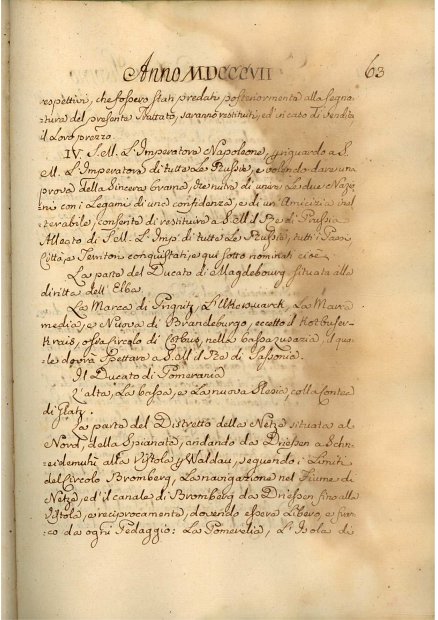 Anno MDCCCVII 63
respettivi, che fossero stati predati posteriormente alla segna-
tura del presente Trattato, saranno restituiti, ed in caso di vendita
il Loro prezzo.
IV. S. M. L'Imperatore Napoleone, p riguardo a S.
M. L'Imperatore di tutte Le Russie, e volendo dare una
prova della Sincera brama, che nutre di unire Le due Nazi-
oni con i Legami di una confidenza, e di un Amicizia inal-
terabile, consente di restituire a S. M. il Re di Prussia
Alleato di S. M. L'Imp. di tutte Le Russie, tutti i Paesi
Città, e Territori conquistati, e qui sotto nominati cioè
La parte del Ducato di Magdebourg situata alla
diritta dell'Elba.
La Marca di Prignitz, L'Ukerwarck, La Marca
media, e Nuova di Brandeburgo, eccetto il Kotbuser-
Krais, ossia Circolo di Cotbus, nella bassa Lusazia, il qua-
le dovrà spettare a S. M. il Re di Sassonia.
Il Ducato di Pomerania
L'alta, La bassa, e La nuova Slesia, colla Contea
di Glatz.
La parte del Distretto della Netze situata al
Nord, della Spianata, andando da Driessen a Schn-
eidemuhl alla Vistola p Waldau, seguendo i Limiti
del Circolo Bromberg, La navigazione nel Fiume di
Netze, ed il canale di Bromberg da Driessen fino alla
Vistola, e reciprocamente, dovendo essere Libero, e fran-
co da ogni Pedaggio: La Pomerelia, L'Isola di